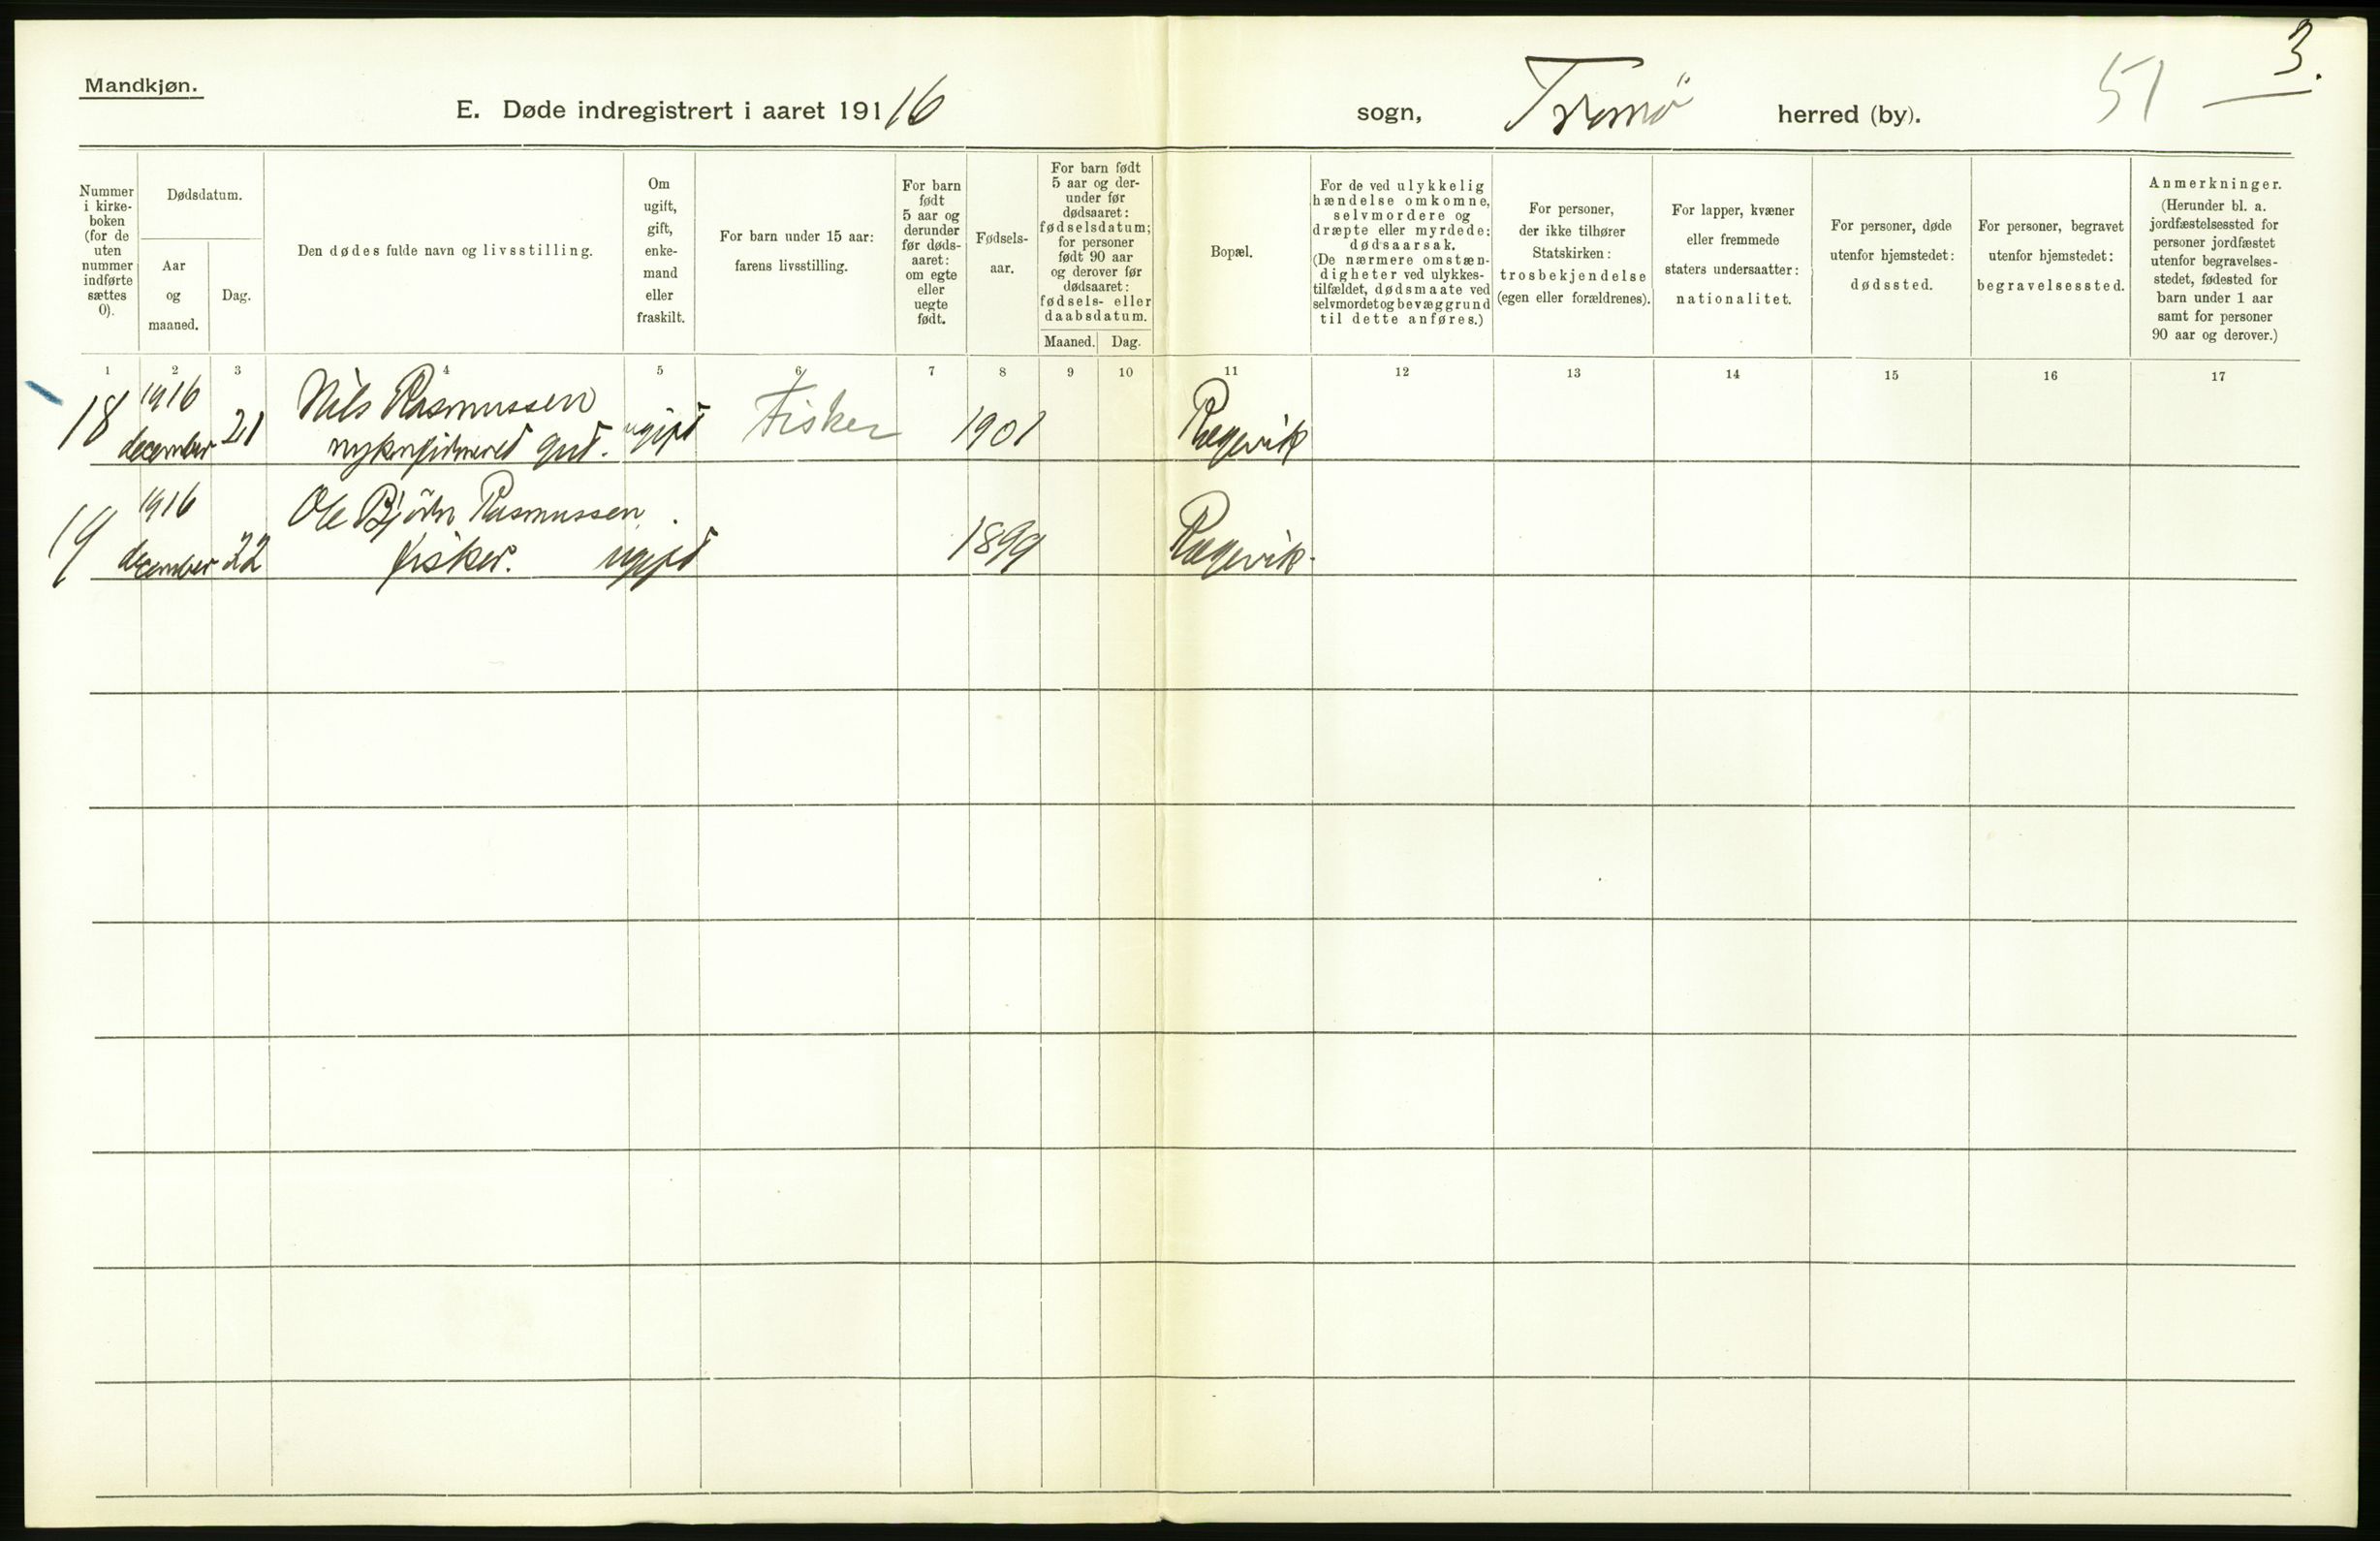 Mandkjøn.
E. Døde indregistrert i aaret 191 16
sogn, Tromö herred (by).
51
3.
Nummer
i kirke-
boken
(for de
uten
nummer
indførte
sættes
0).
Dødsdatum.
Aar
og
maaned.
Dag.
Den dødes fulde navn og livsstilling.
Om
ugift,
gift,
enke-
mand
eller
fraskilt.
For barn under 15 aar:
farens livsstilling.
For barn
født
5 aar og
derunder
før døds-
aaret:
om egte
eller
uegte
født.
Fødsels-
aar.
For barn født
5 aar og der-
under før
dødsaaret:
fødselsdatum;
for personer
født 90 aar
og derover før
dødsaaret:
fødsels- eller
daabsdatum.
Maaned. Dag.
Bopæl.
For de ved ulykkelig
hændelse omkomne,
selvmordere og
dræpte eller myrdede:
dødsaarsak.
(De nærmere omstæn-
digheter ved ulykkes-
tilfældet, dødsmaate ved
selvmordet og bevæggrund
til dette anføres.)
For personer,
der ikke tilhører
Statskirken:
trosbekjendelse
(egen eller forældrenes).
For lapper, kvæner
eller fremmede
staters undersaatter:
nationalitet.
For personer, døde
utenfor hjemstedet:
dødssted.
For personer, begravet
utenfor hjemstedet:
begravelsessted.
Anmerkninger.
(Herunder bl. a.
jordfæstelsessted for
personer jordfæstet
utenfor begravelses-
stedet, fødested for
barn under 1 aar
samt for personer
90 aar og derover.)
1 2 3 4 5 6 7 8 9 10 11 12 13 14 15 16 17
1916 Nils Rasmussen
18 december 21 nykonfirmeret gut. ugift Fisker 1901
1916 Ole Björn Rasmussen
19 december 22 fisker. ugift 1899